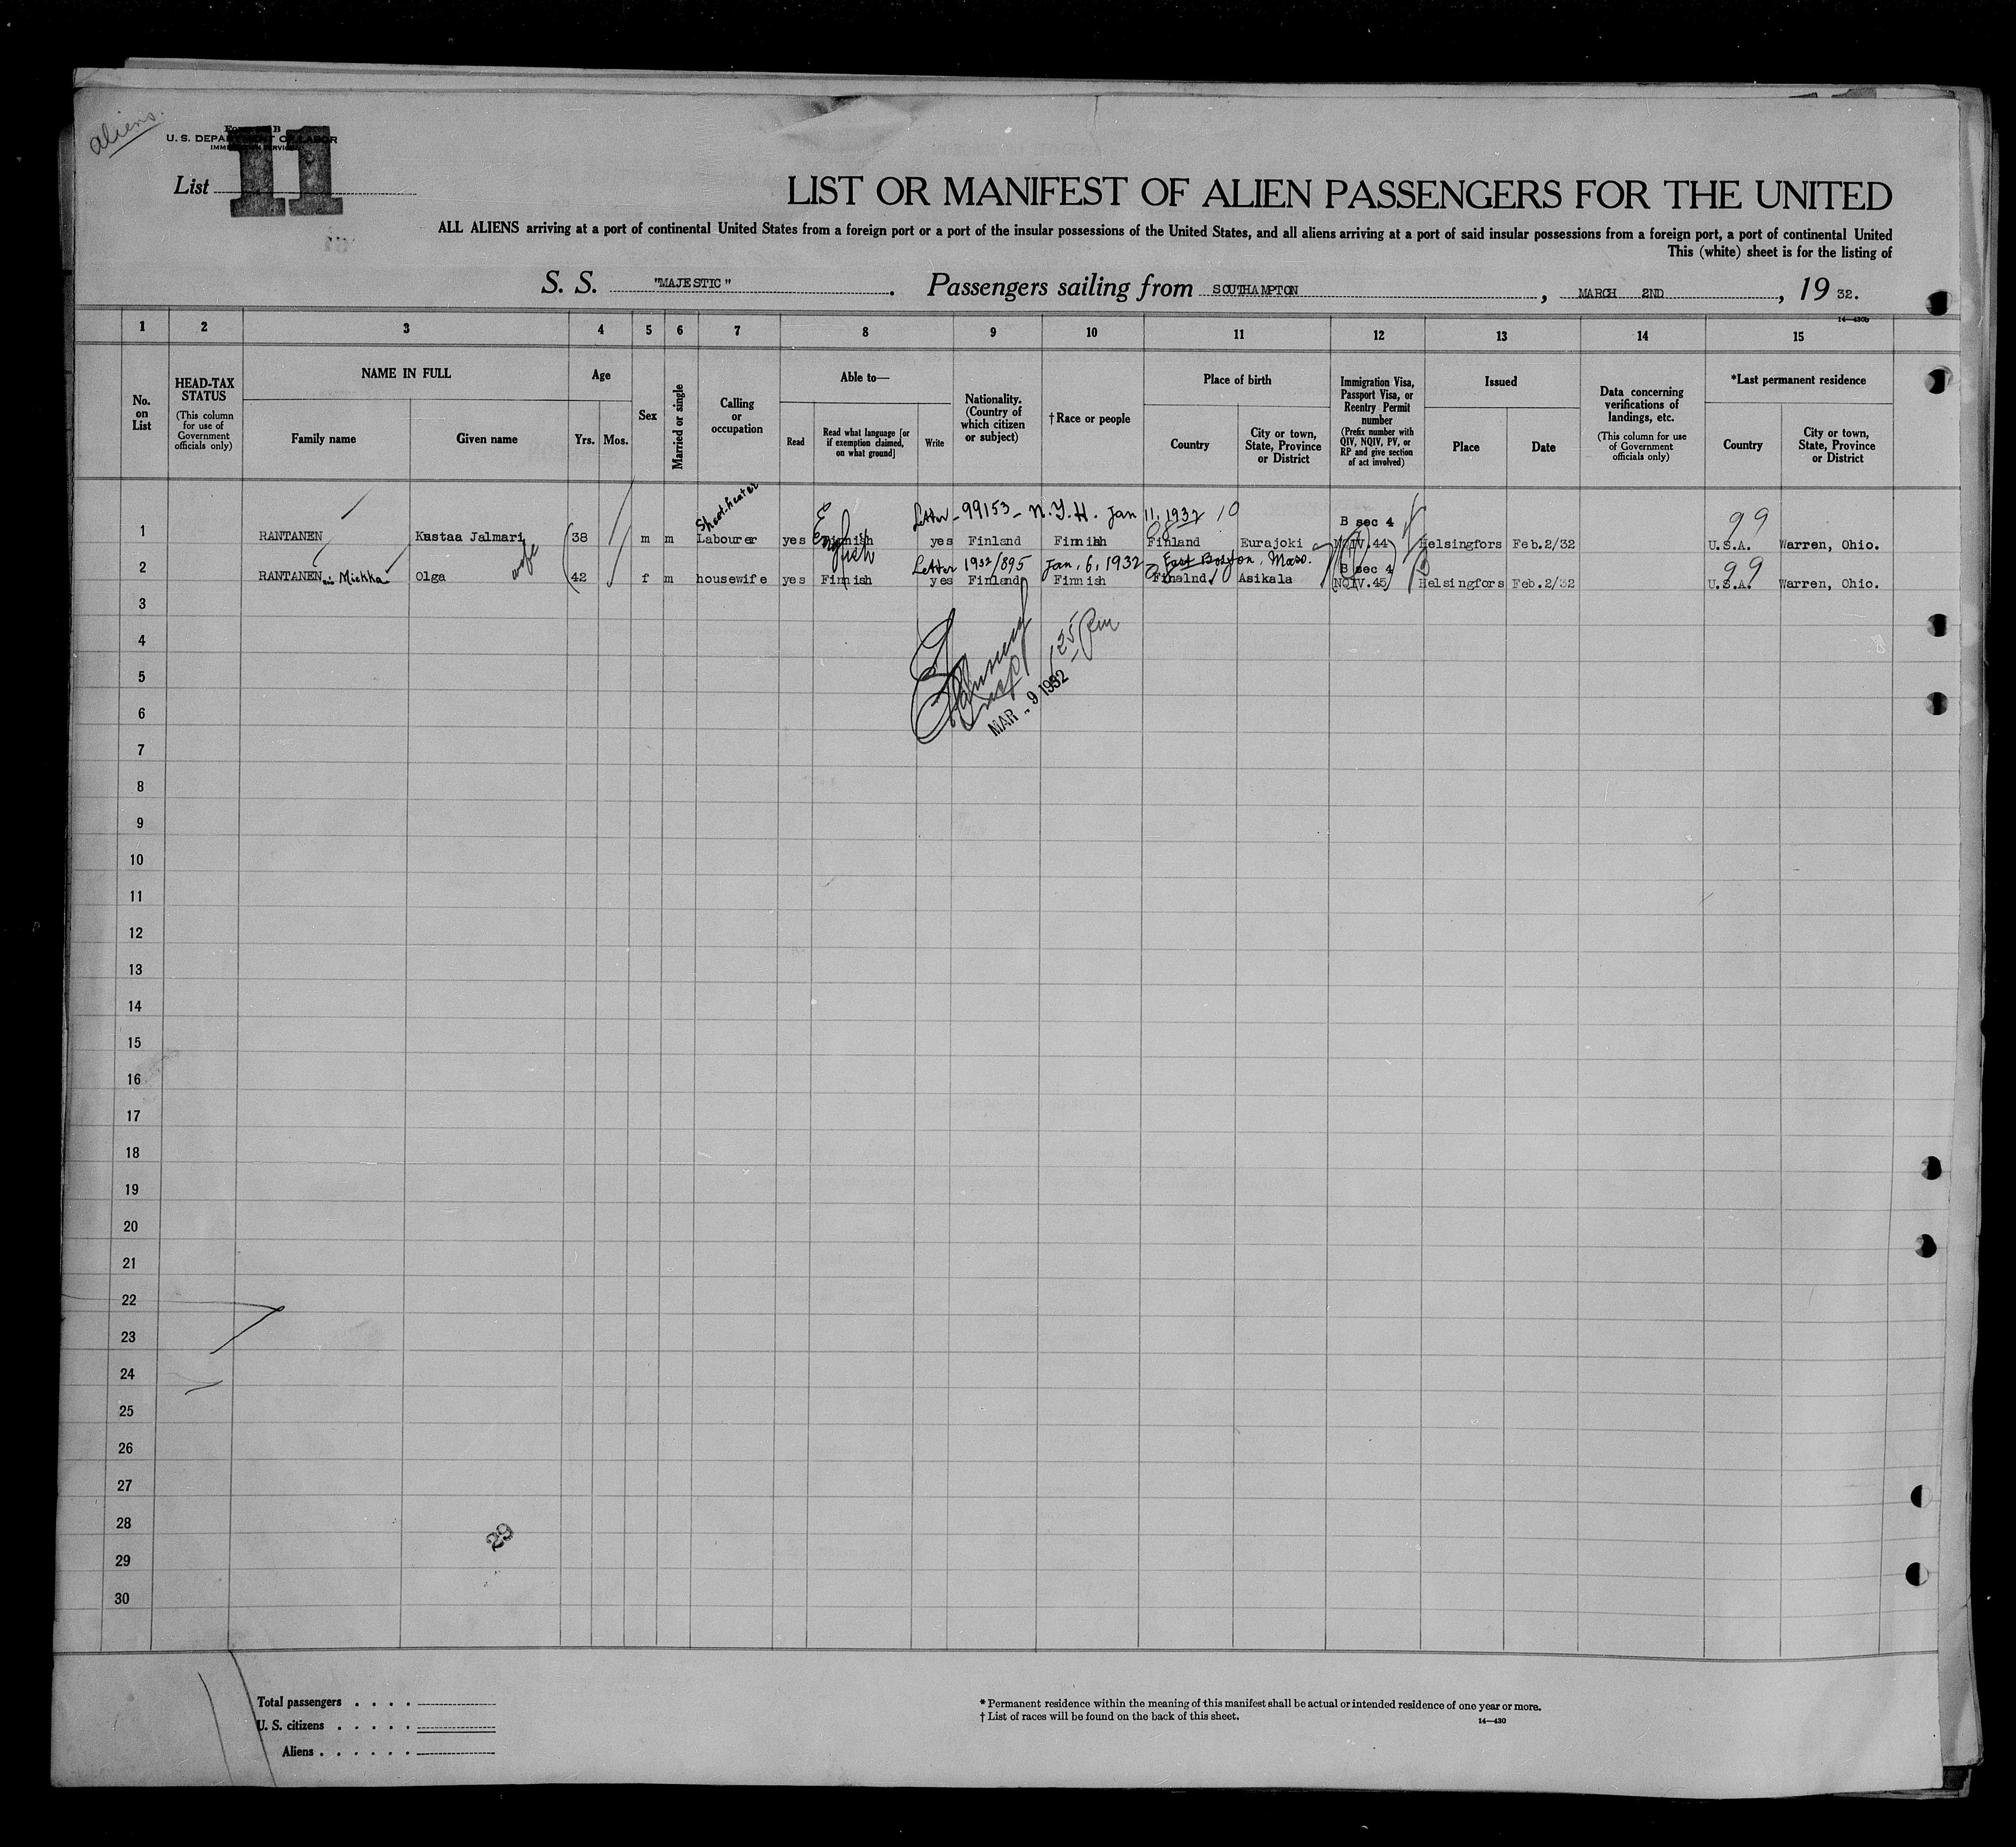 aliens.
U. S. DEPARTMENT OF LABOR
IMMIGRATION SERVICE
List 11
LIST OR MANIFEST OF ALIEN PASSENGERS FOR THE UNITED
ALL ALIENS arriving at a port of continental United States from a foreign port or a port of the insular possessions of the United States, and all aliens arriving at a port of said insular possessions from a foreign port, a port of continental United
This (white) sheet is for the listing of
S. S. "MAJESTIC". Passengers sailing from SOUTHAMPTON, MARCH 2ND, 19 32.
14—430b
1 2 3 4 5 6 7 8 9 10 11 12 13 14 15
No. on List
HEAD-TAX STATUS
(This column for use of Government officials only)
NAME IN FULL
Family name
Given name
Age
Yrs. Mos.
Sex
Married or single
Calling or occupation
Able to—
Read
Read what language [or if exemption claimed, on what ground]
Write
Nationality. (Country of which citizen or subject)
† Race or people
Place of birth
Country
City or town, State, Province or District
Immigration Visa, Passport Visa, or Reentry Permit number
(Prefix number with QIV, NQIV, PV, or RP and give section of act involved)
Issued
Place
Date
Data concerning verifications of landings, etc.
(This column for use of Government officials only)
*Last permanent residence
Country
City or town, State, Province or District
Sheet-heater
English
Letter - 99153 - N.Y.H. Jan 11, 1932
B sec 4
99
1 RANTANEN Kustaa Jalmari 38 m m Labourer yes Finnish yes Finland Finnish Finland Eurajoki NQIV.44 Helsingfors Feb.2/32 U.S.A. Warren, Ohio.
wife
Letter 1932/895 Jan, 6, 1932 East Boston, Mass.
B sec 4
99
2 RANTANEN Mickka Olga 42 f m housewife yes Finnish yes Finland Finnish Finalnd Asikala NQIV.45 Helsingfors Feb.2/32 U.S.A. Warren, Ohio.
3
4
5
6
MAR - 9 1932
7
8
9
10
11
12
13
14
15
16
17
18
19
20
21
22
23
24
25
26
27
28
29
29
30
Total passengers . . . .
U. S. citizens . . . . .
Aliens . . . . . .
* Permanent residence within the meaning of this manifest shall be actual or intended residence of one year or more.
† List of races will be found on the back of this sheet.
14—430